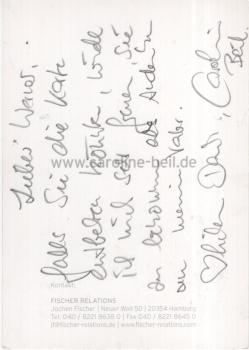 Lieber Werner,
falls Sie die Karte
entbehren können, würde
ich mich sehr freuen, sie
zu bekommen als Andenken
an meinen Vater.
Vielen Dank, Caroline
Beil
www.caroline-beil.de
Kontakt:
FISCHER RELATIONS
Jochen Fischer | Neuer Wall 50 | 20354 Hamburg
Tel. 040 / 8221 8638 0 | Fax 040 / 8221 8645 0
jf@fischer-relations.de | www.fischer-relations.de